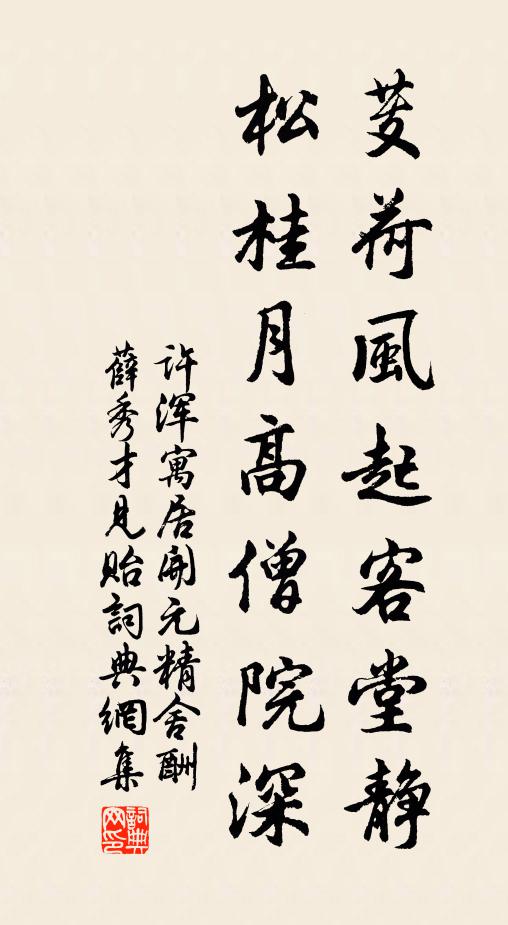 芰荷風起客堂静
松桂月高僧院深
许渾寓居開元精舍酬
薛秀才見貽詞典網集
詞典網印